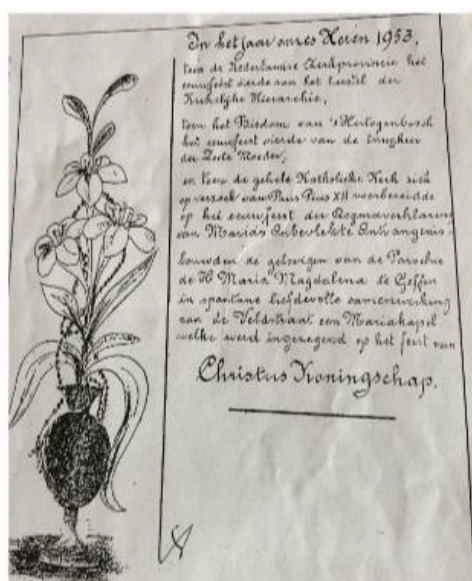 In het jaar onzes Heren 1953,
toen de Nederlandse Kerkprovincie het
eeuwfeest vierde van het herstel der
Kerkelijke Hierarchie,
toen het Bisdom van 's Hertogenbosch
het eeuwfeest vierde van de terugkeer
der Zoete Moeder,
en toen de gehele Katholieke Kerk zich
op verzoek van Paus Pius XII voorbereidde
op het eeuwfeest der Dogmaverklaring
van Maria's Onbevlekte Ontvangenis-
bouwden de gelovigen van de Parochie
de H. Maria Magdalena te Geffen
in spontane liefdevolle samenwerking
aan de Veldstraat een Mariakapel
welke werd ingezegend op het feest van
Christus Koningschap.